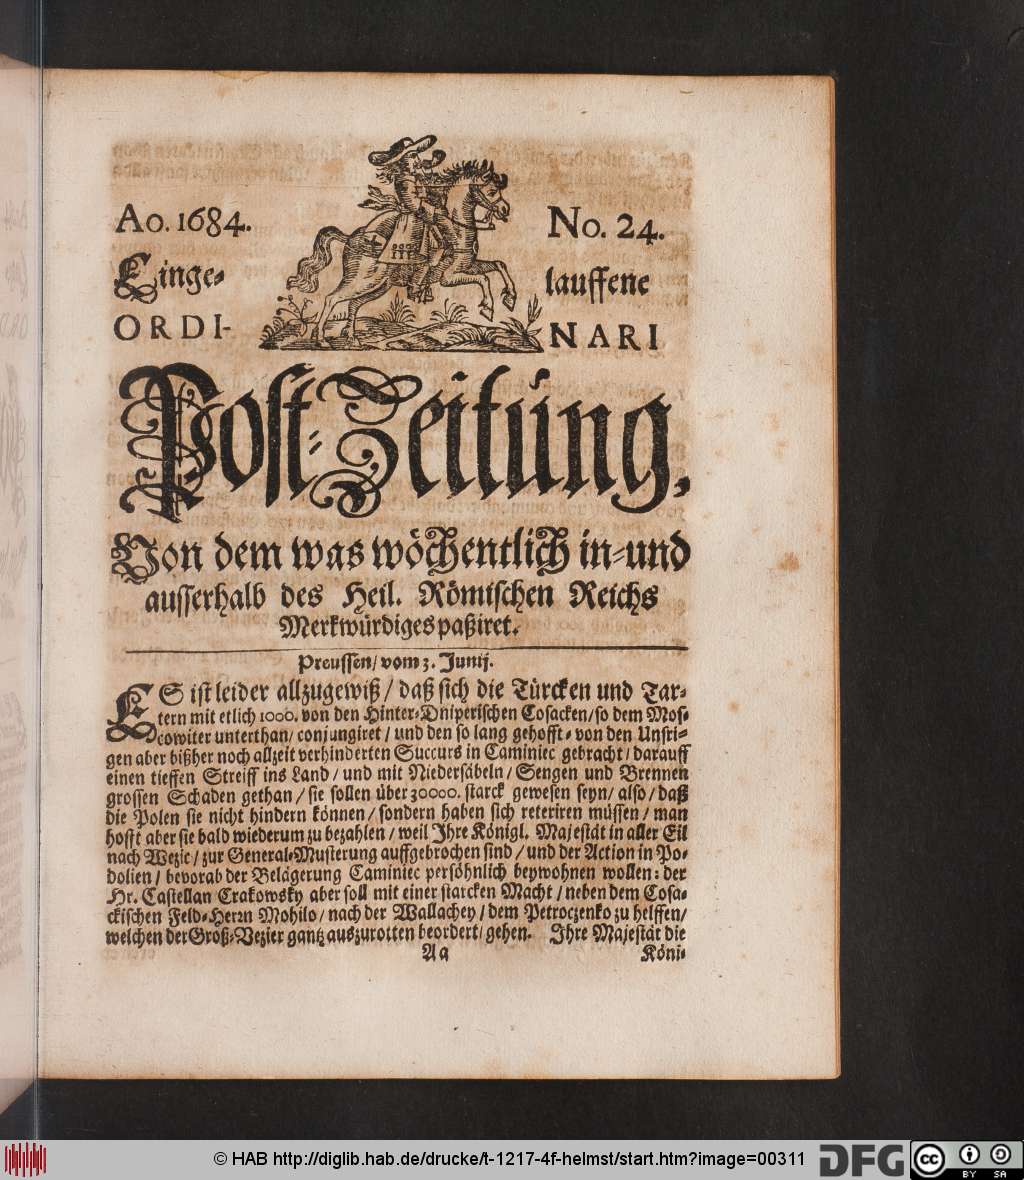 Ao. 1684.
No. 24.
Einge-
lauffene
ORDI-
NARI
Post-Zeitung,
Von dem was wöchentlich in-und
ausserhalb des Heil. Römischen Reichs
Merkwürdiges paßiret.
Preussen/ vom 3. Junij.
ES ist leider allzugewiß / daß sich die Türcken und Tar-
tern mit etlich 1000. von den Hinter-Dniperischen Cosacken/ so dem Mos-
cowiter unterthan/ conjungiret / und den so lang gehofft- von den Unsri-
gen aber bißher noch allzeit verhinderten Succurs in Caminiec gebracht/ darauff
einen tieffen Streiff ins Land / und mit Niedersäbeln/ Sengen und Brennen
grossen Schaden gethan / sie sollen über 30000. starck gewesen seyn/ also / daß
die Polen sie nicht hindern können / sondern haben sich reteriren müssen / man
hofft aber sie bald wiederum zu bezahlen / weil Ihre Königl. Majestät in aller Eil
nach Wezie / zur General-Musterung auffgebrochen sind / und der Action in Po-
dolien / bevorab der Belägerung Caminiec persöhnlich beywohnen wollen: der
Hr. Castellan Crakowsky aber soll mit einer starcken Macht / neben dem Cosa-
ckischen Feld-Herrn Mohilo / nach der Wallachey / dem Petroczenko zu helffen/
welchen der Groß-Vezier gantz auszurotten beordert/ gehen. Ihre Majestät die
Aa
Köni-
© HAB http://diglib.hab.de/drucke/t-1217-4f-helmst/start.htm?image=00311
DFG
cc
BY SA